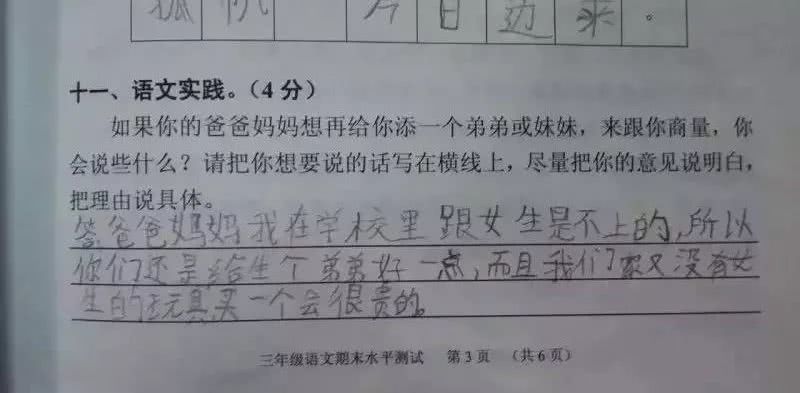 孤帆一片日边来。
十一、语文实践。（4分）
如果你的爸爸妈妈想再给你添一个弟弟或妹妹，来跟你商量，你
会说些什么？请把你想要说的话写在横线上，尽量把你的意见说明白，
把理由说具体。
答爸爸妈妈我在学校里跟女生是不上的，所以
你们还是给生个弟弟好一点，而且我们家又没有女
生的玩具买一个会很贵的。
三年级语文期末水平测试 第3页 （共6页）